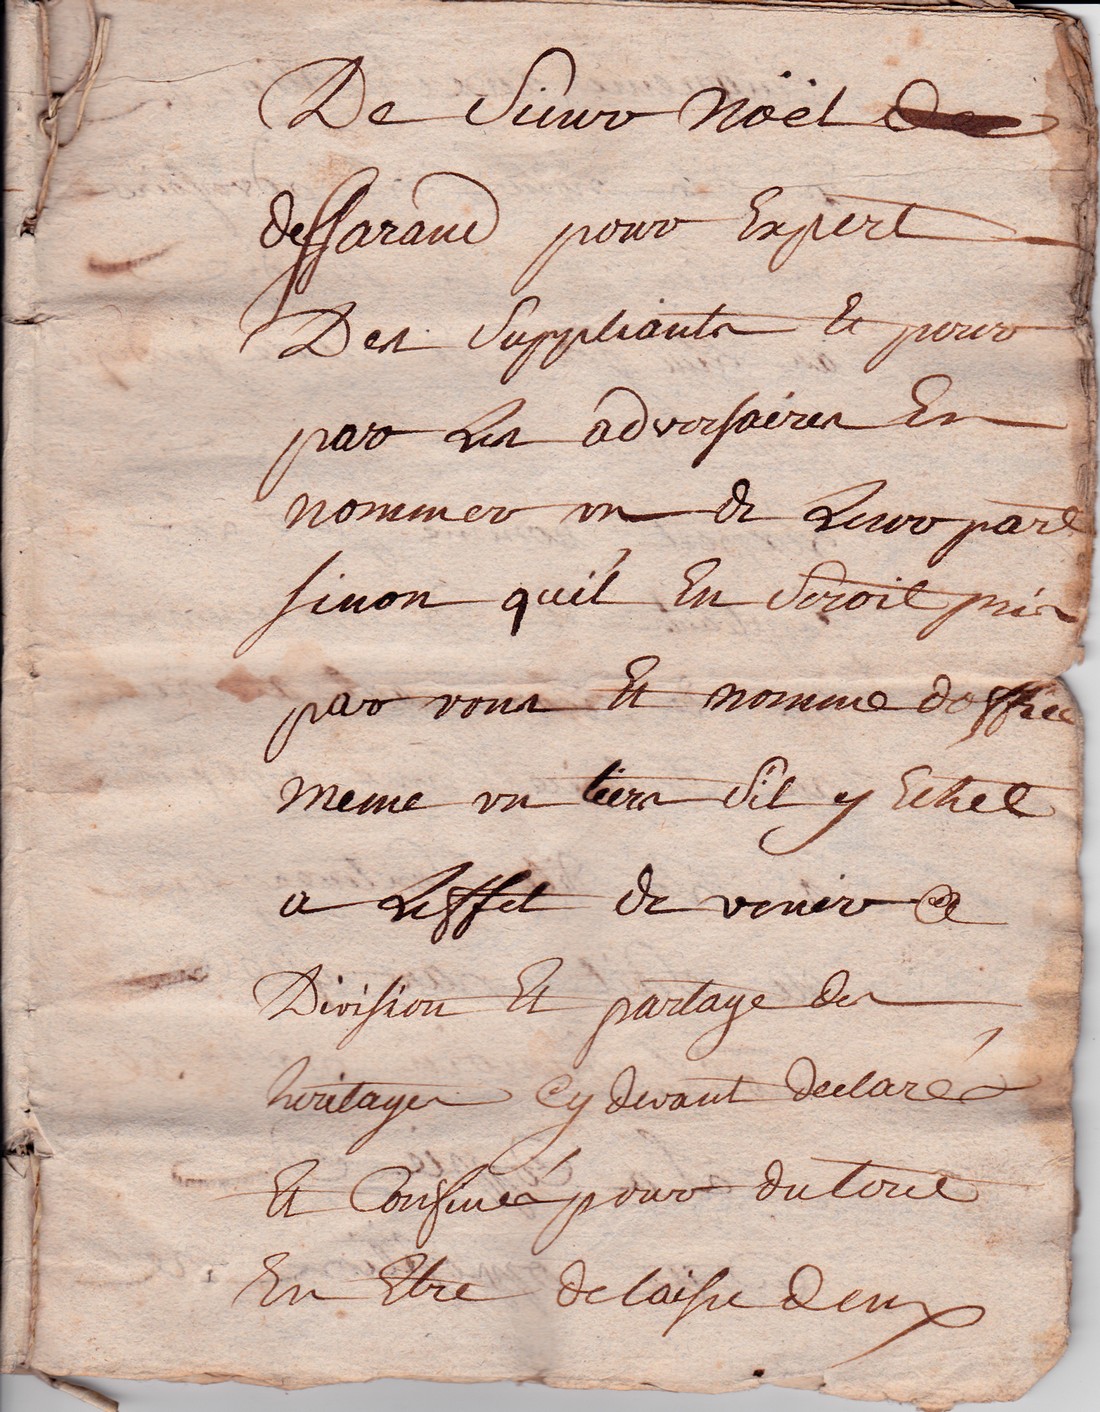 De Sieur Noël
desfarand pour Expert
Des Suppliants Et pour
par Les adversaires En
nommer un de Leur part
sinon quil En Seroit pris
par vous Et nomme doffice
meme un tiers Sil y Echet
a Leffet de venir a
Division Et partage des
heritages Cy devant declarés
Et Confinés pour du tout
En Etre delaisse deux